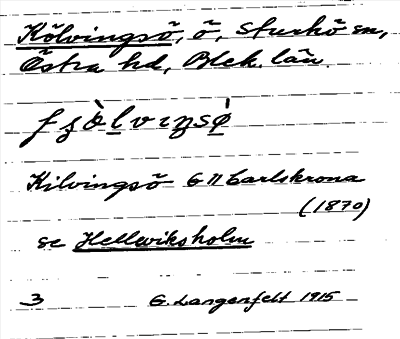 Kölvingsö, ö, Sturkö sn,
Östra hd, Blek. län.
Kilvingsö G II Carlskrona
(1870)
se Hellwiksholm
3 G. Langenfelt 1915